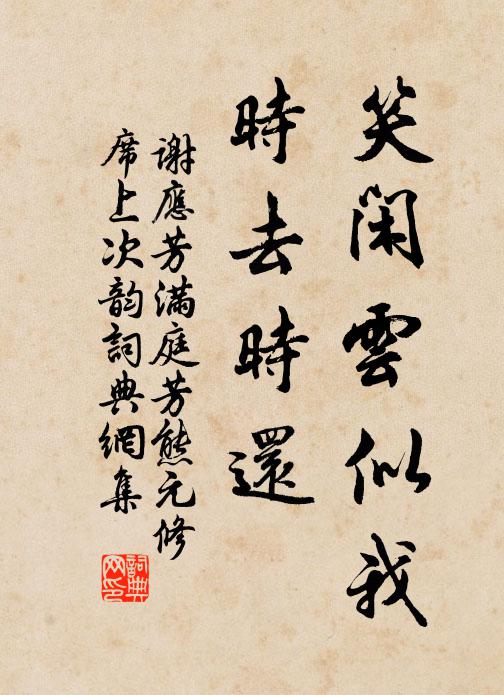 笑閑雲似我
時去時還
謝應芳滿庭芳熊元修
席上次韵詞典網集
詞典網印